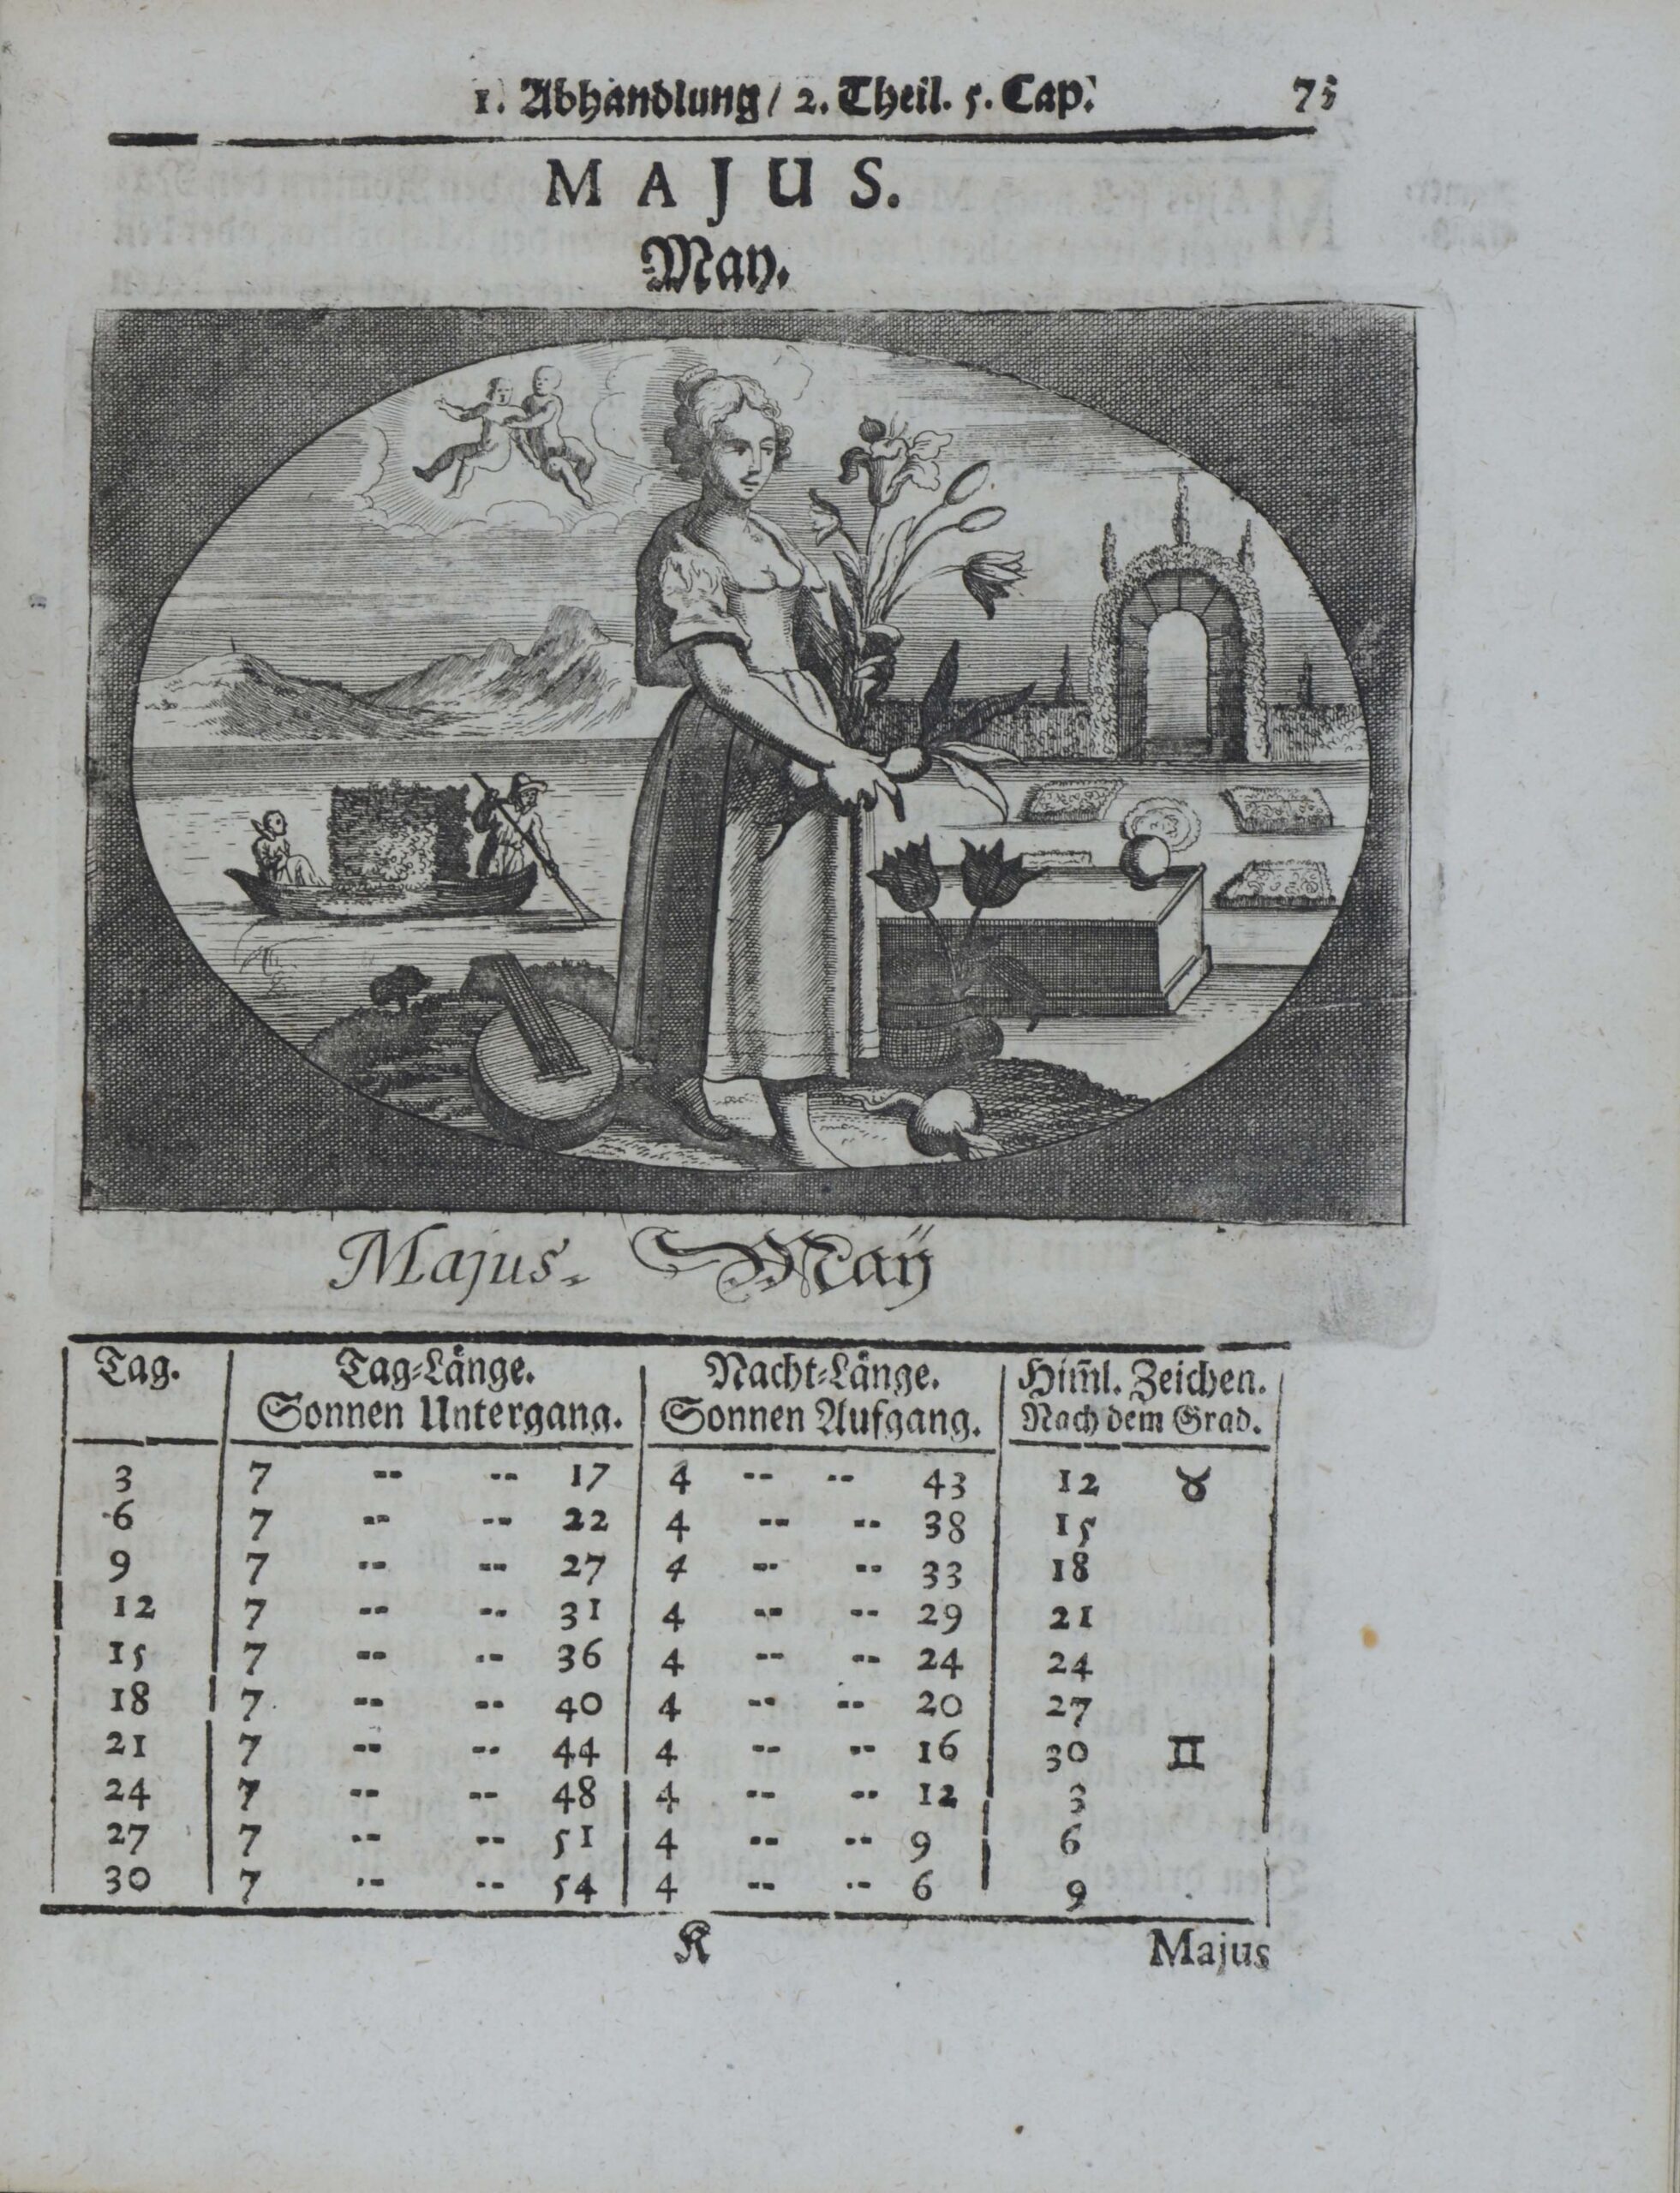 1. Abhandlung / 2. Theil. 5. Cap. 73
MAJUS.
May.
Majus. Maÿ
Tag. Tag-Länge. Nacht-Länge. Him̃l. Zeichen.
Sonnen Untergang. Sonnen Aufgang. Nach dem Grad.
3 7 -- -- 17 4 -- -- 43 12 ♉
6 7 -- -- 22 4 -- -- 38 15
9 7 -- -- 27 4 -- -- 33 18
12 7 -- -- 31 4 -- -- 29 21
15 7 -- -- 36 4 -- -- 24 24
18 7 -- -- 40 4 -- -- 20 27
21 7 -- -- 44 4 -- -- 16 30 ♊
24 7 -- -- 48 4 -- -- 12 3
27 7 -- -- 51 4 -- -- 9 6
30 7 -- -- 54 4 -- -- 6 9
K Majus